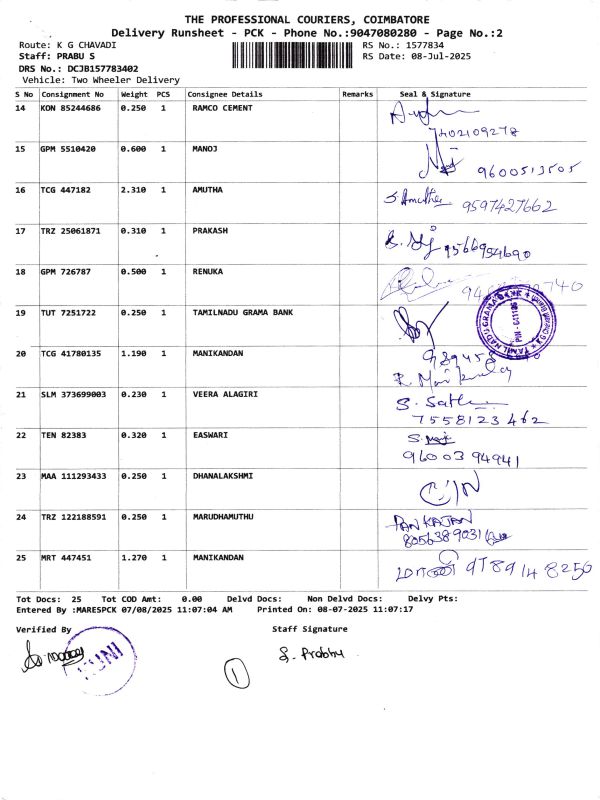 THE PROFESSIONAL COURIERS, COIMBATORE
Delivery Runsheet - PCK - Phone No.:9047080280 - Page No.:2
Route: K G CHAVADI RS No.: 1577834
Staff: PRABU S RS Date: 08-Jul-2025
DRS No.: DCJB157783402
Vehicle: Two Wheeler Delivery
S No Consignment No Weight PCS Consignee Details Remarks Seal & Signature
14 KON 85244686 0.250 1 RAMCO CEMENT
7402109278
15 GPM 5510420 0.600 1 MANOJ
9600513505
16 TCG 447182 2.310 1 AMUTHA
S. Amutha 9597427662
17 TRZ 25061871 0.310 1 PRAKASH
9566954690
18 GPM 726787 0.500 1 RENUKA
19 TUT 7251722 0.250 1 TAMILNADU GRAMA BANK
20 TCG 41780135 1.190 1 MANIKANDAN
21 SLM 373699003 0.230 1 VEERA ALAGIRI
7558123462
22 TEN 82383 0.320 1 EASWARI
9600394941
23 MAA 111293433 0.250 1 DHANALAKSHMI
24 TRZ 122188591 0.250 1 MARUDHAMUTHU
PANKAJAN
8056389031
25 MRT 447451 1.270 1 MANIKANDAN
9789148256
Tot Docs: 25 Tot COD Amt: 0.00 Delvd Docs: Non Delvd Docs: Delvy Pts:
Entered By :MARESPCK 07/08/2025 11:07:04 AM Printed On: 08-07-2025 11:07:17
Verified By Staff Signature
S. Prabhu
1